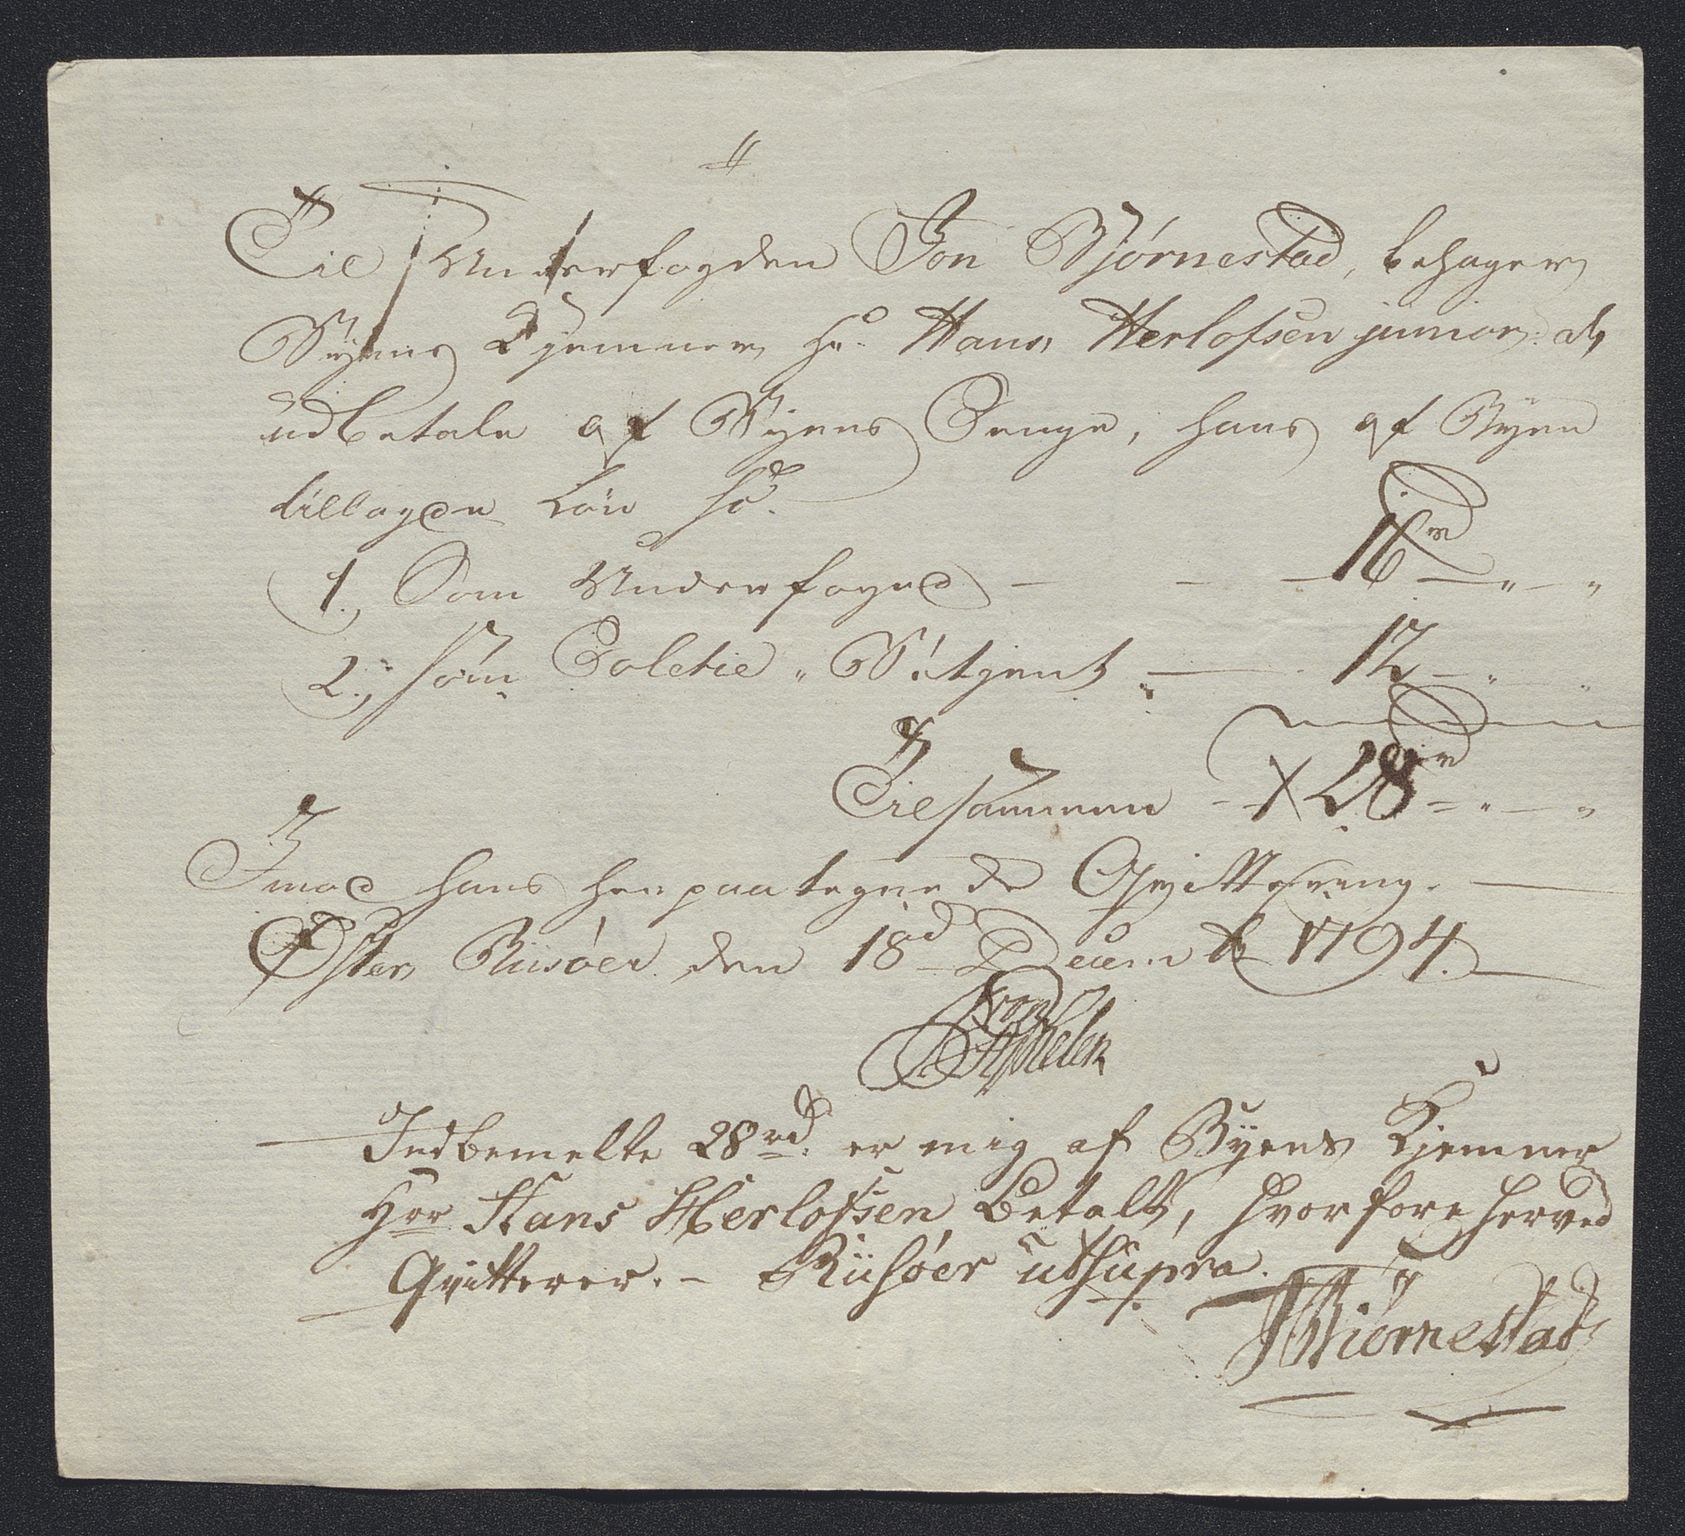 Til Underfogden Jon Bjørnestad, behager
Byens Kjemner Hr. Hans Herlofsen junior at
udbetale af Byens Penge, hans af Byen
tillagde Løn so.
1., Som Underfoged — — — 16 rd — „ — „
2., som Politie-Betjent — 12 — „ „
Tilsammen — 28 rd — „ — „
Imod hans her paategnede Qvittering. —
Øster Riisøer den 18d Decembr 1794.
Indbemelte 28 rd. er mig af Byens Kjemner
Hrr Hans Herlofsen betalt, hvorfore herved
Qvitterer. – Riisøer ut supra.
JBiørnestad